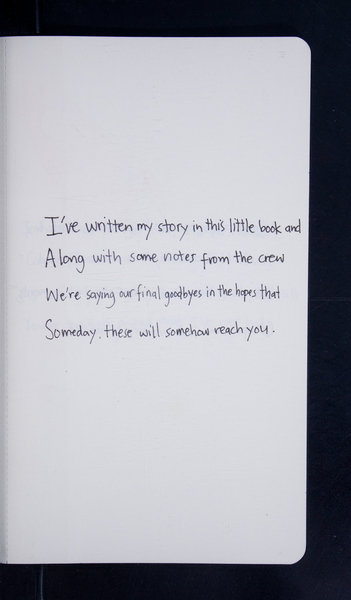 I've written my story in this little book and
Along with some notes from the crew
We're saying our final goodbyes in the hopes that
Someday, these will somehow reach you.